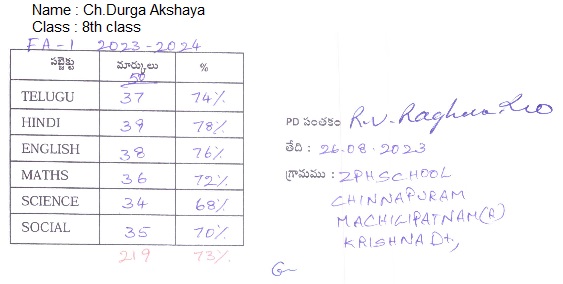 Name : Ch.Durga Akshaya
Class : 8th class
FA-1 2023-2024
సబ్జెక్టు మార్కులు %
50
TELUGU 37 74%
HINDI 39 78%
ENGLISH 38 76%
MATHS 36 72%
SCIENCE 34 68%
SOCIAL 35 70%
219 73%
PD సంతకం R.V. Raghava Rao
తేది : 26.08.2023
గ్రామము : ZPHSCHOOL
CHINNAPURAM
MACHILIPATNAM(R)
KRISHNA Dt,